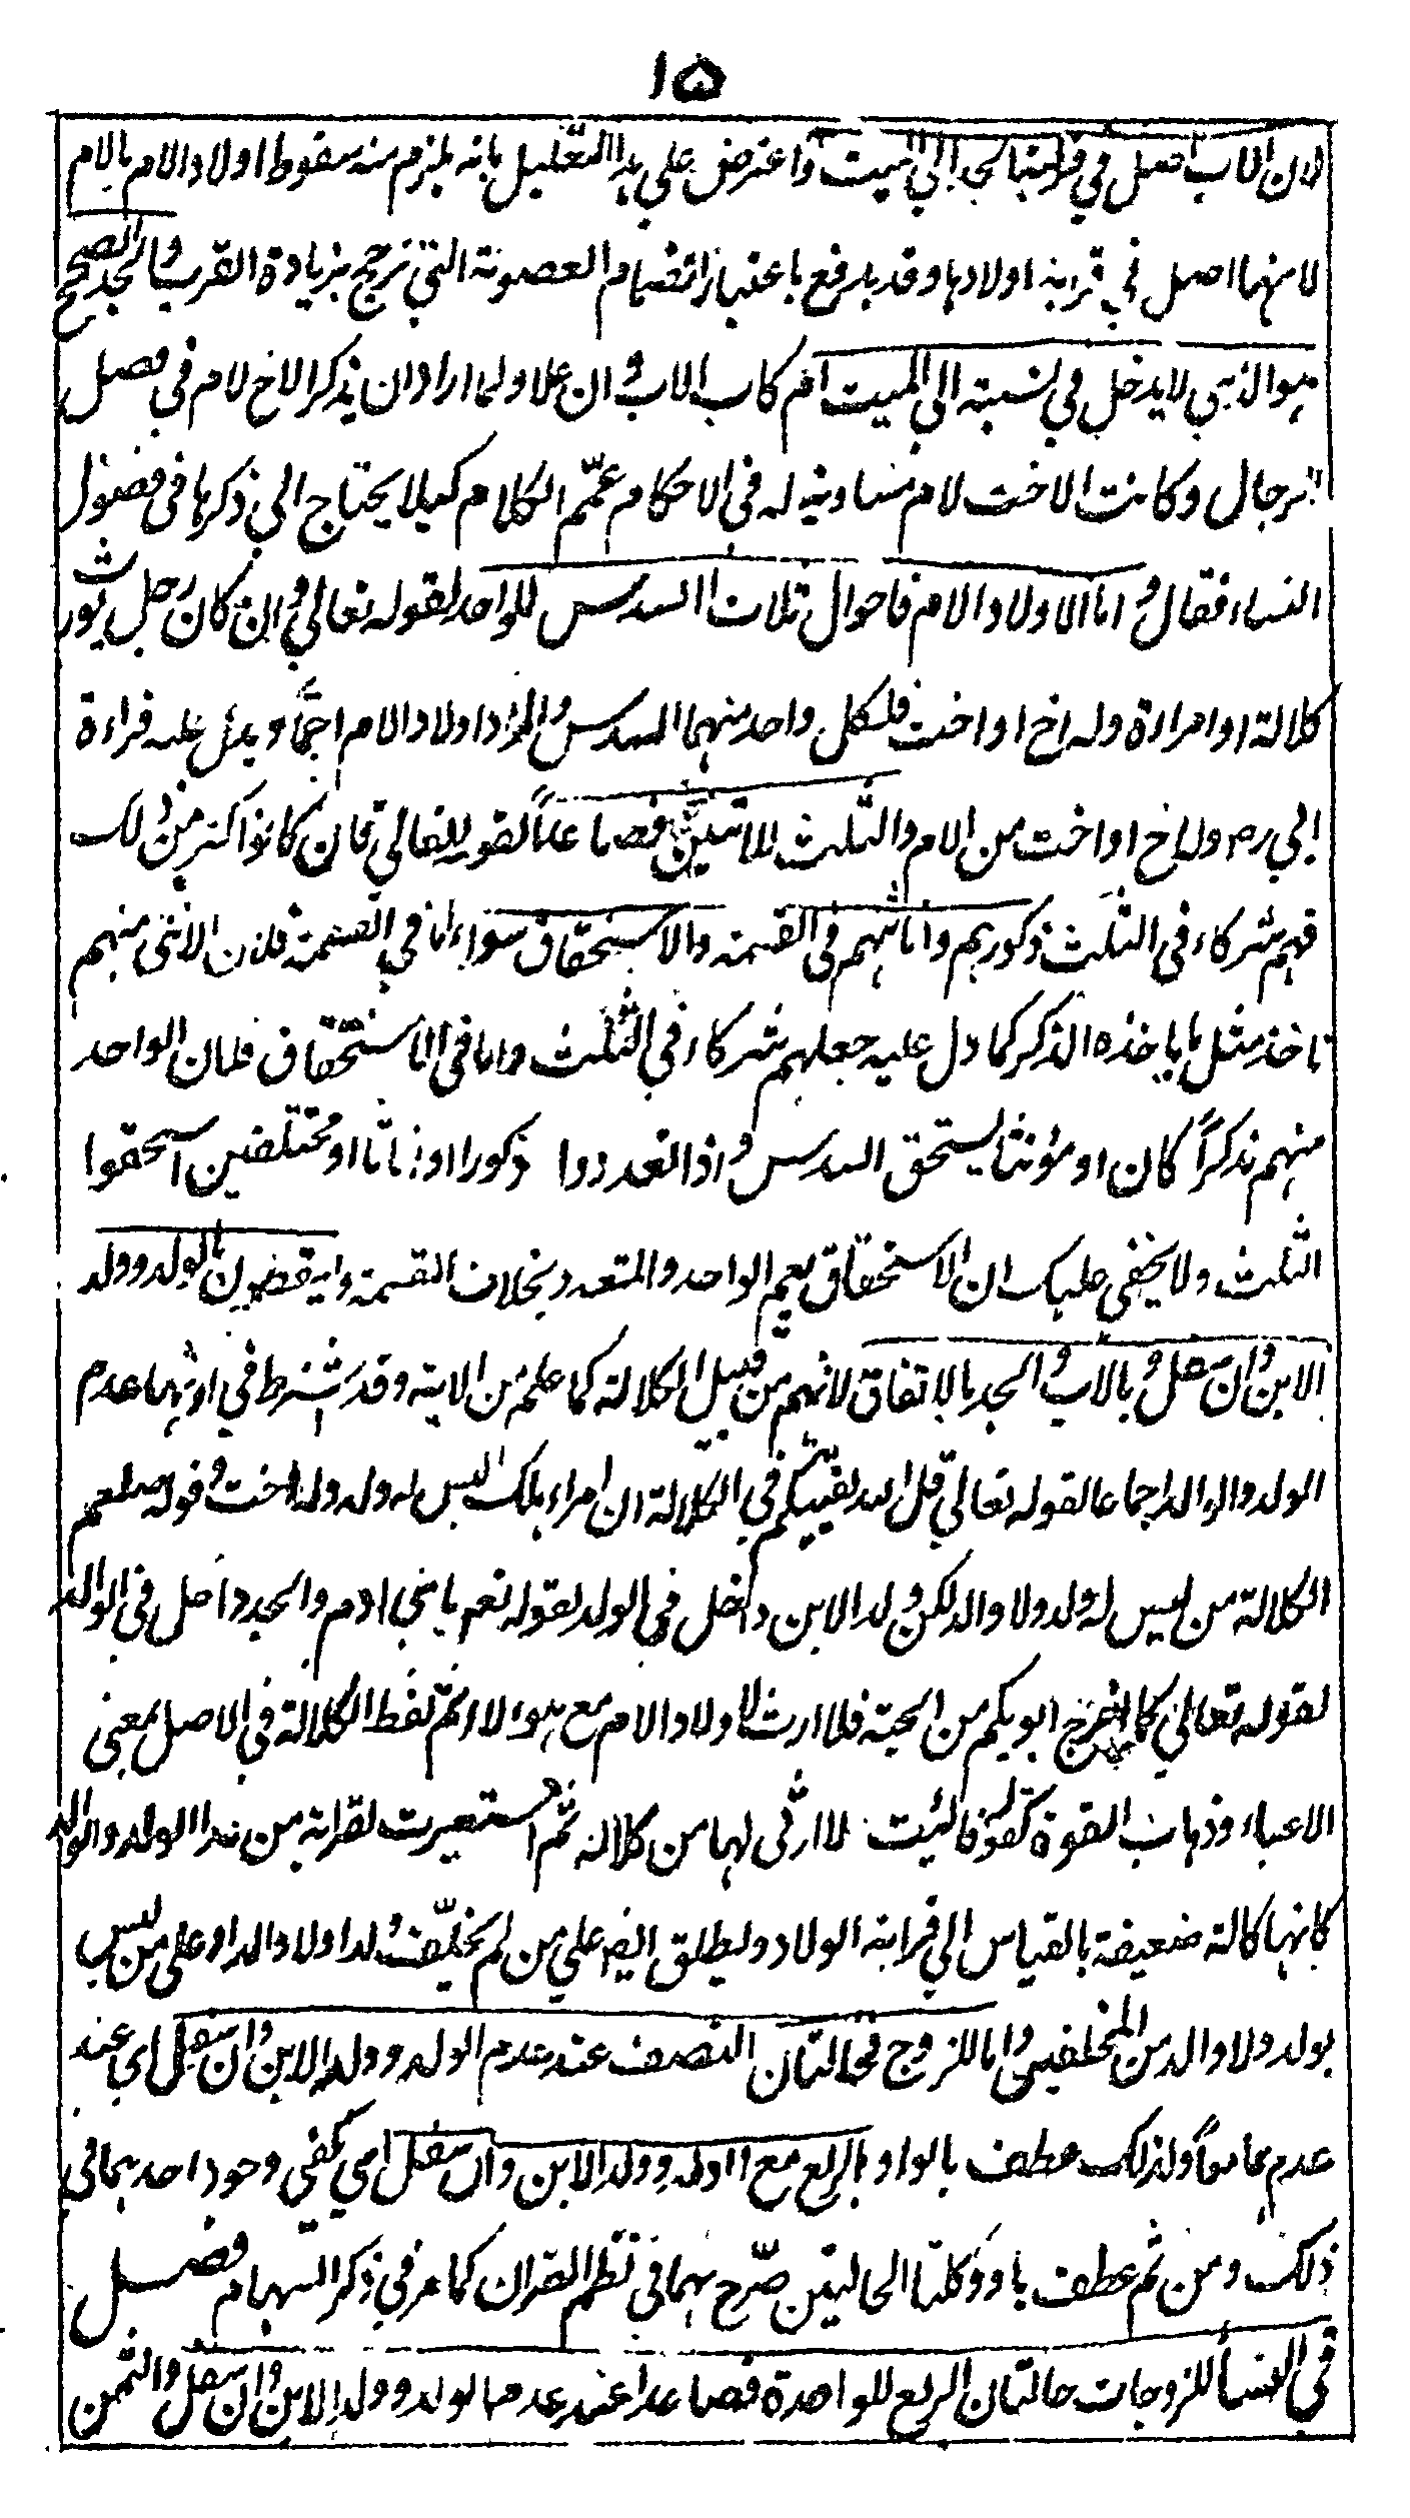 ١٥
لان الاب اصل في قرابة الجد الي الميت واعترض علي هذا التعليل بانه يلزم منه سقوط اولاد الام بالام
لانها اصل في قرابة اولادها وقد يدفع باعتبار انضمام العصوبة التي ترجح بزيادة القرب والجد الصحيح
هو الذي لا يدخل في نسبته الي الميت ام كاب الاب وان علا ولما اراد ان يذكر الاخ لام في فصل
الرجال وكانت الاخت لام مساوية له في الاحكام عمّم الكلام كيلا يحتاج الي ذكرها في فصول
النساء فقال واما الاولاد الام فاحوال ثلاث السدس للواحد لقوله تعالي وان كان رجل يورث
كلالة او امراة وله اخ او اخت فلكل واحد منهما السدس والمراد اولاد الام اجماعا ويدل عليه قراءة
ابي رض وله اخ او اخت من الام والثلث للاثنين فصاعداً لقوله تعالي فان كانوا اكثر من ذلك
فهم شركاء في الثلث ذكورهم واناثهم في القسمة والاستحقاق سواء اما في القسمة فلان الانثي منهم
تاخذ مثل ما ياخذه الذكر كما دل عليه جعلهم شركاء في الثلث واما في الاستحقاق فلان الواحد
منهم مذكراً كان او مؤنثا يستحق السدس واذا تعددوا ذكورا او اناثا او مختلفين استحقوا
الثلث ولا يخفي عليك ان الاستحقاق يعم الواحد والمتعدد بخلاف القسمة ويسقطون بالولد وولد
الابن وان سفل وبالاب والجد بالاتفاق لانهم من قبيل الكلالة كما علم من الاية وقد اشترط في ارثها عدم
الولد والوالد اجماعا لقوله تعالي قل الله يفتيكم في الكلالة ان امراء هلك ليس له ولد وله اخت وقوله صلعم
الكلالة من ليس له ولد ولا والد لكن ولد الابن داخل في الولد لقوله تعم يا بني ادم والجد داخل في الوالد
لقوله تعالي كما اخرج ابويكم من الجنة فلا ارث لاولاد الام مع هولا ثم لفظ الكلالة في الاصل بمعني
الاعياء وذهاب القوة كقوله فاليت لا ارثي لها من كلالة ثم استعيرت لقرابة من عدا الولد والوالد
كانها كالة ضعيفة بالقياس الي قرابة الولاد ويطلق ايضا علي من لم يخلّف ولدا ولا والدا وعلي من ليس
بولد ولا والد من المخلفين واما للزوج فحالتان النصف عند عدم الولد وولد الابن وان سفل اي عند
عدمهما معاً ولذلك عطف بالواو والربع مع الولد وولد الابن وان سفل اي يكفي وجود احدهما في
ذلك ومن ثم عطف باو وكلتا الحالتين صرّح بهما في نظم القران كما مر في ذكر السهام فصل
في النساء للزوجات حالتان الربع للواحدة فصاعدا عند عدم الولد وولد الابن وان سفل والثمن